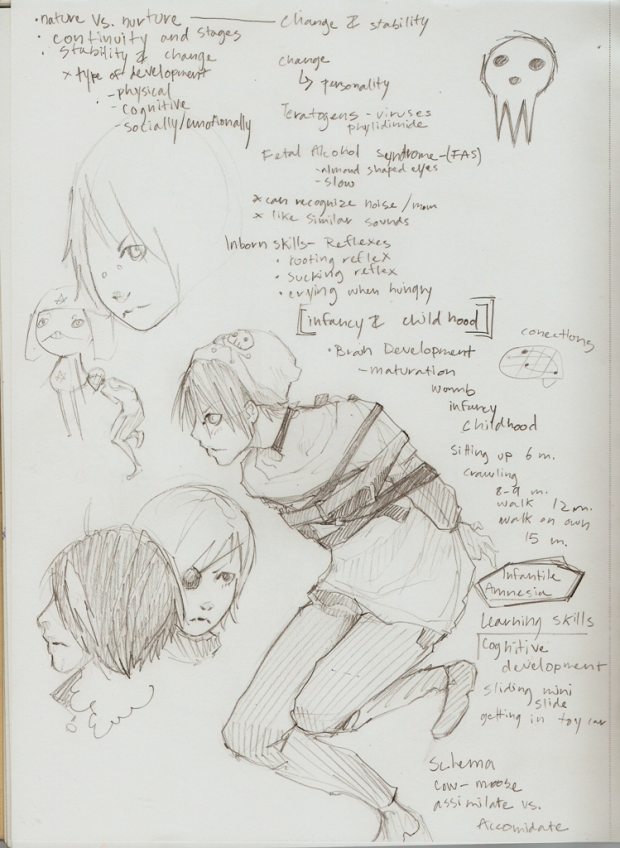 • nature vs. nurture
• continuity and stages
• stability & change
x type of development
- physical
- cognitive
- socially/emotionally
Change & stability
change
↳ personality
Teratogens - viruses
phylidimide
Fetal Alcohol syndrome - (FAS)
- almond shaped eyes
- slow
x can recognize noise / mom
x like similar sounds
Inborn skills - Reflexes
• rooting reflex
• sucking reflex
• crying when hungry
[infancy & child hood]
• Brain Development
- maturation
womb
infancy
childhood
conections
sitting up 6 m.
crawling
8-9 m.
walk 12 m.
walk on own
15 m.
Infantile
Amnesia
Learning skills
Cognitive
development
sliding mini
slide
getting in toy car
Schema
cow - moose
assimilate vs.
Accomidate